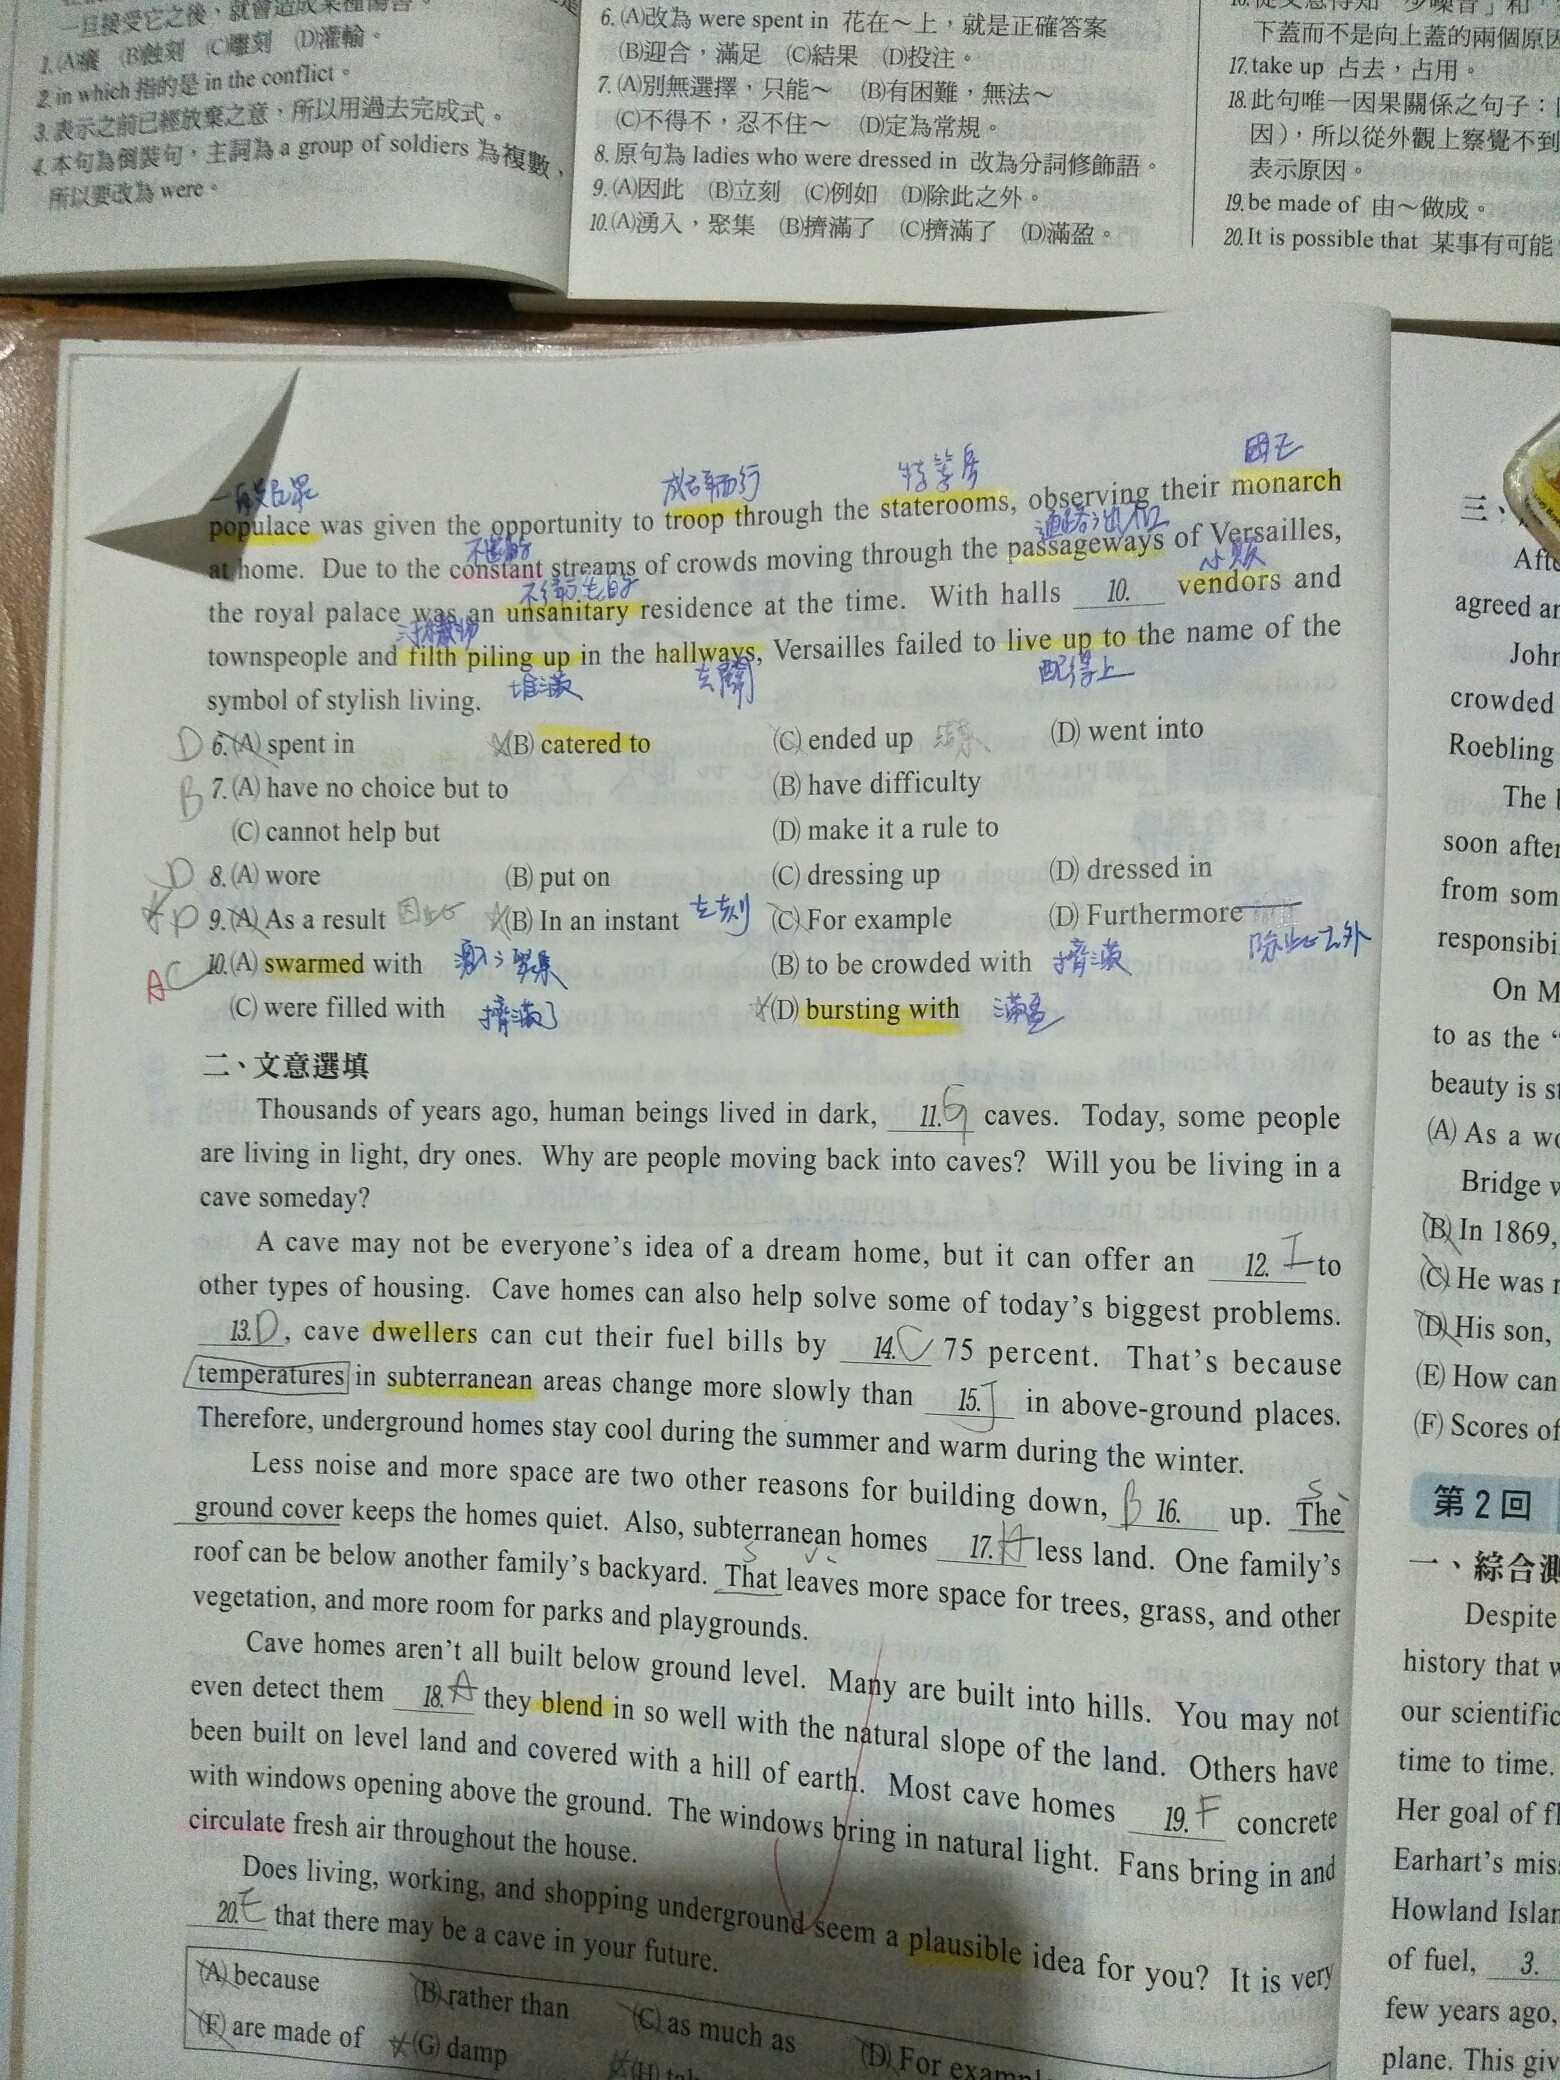 一旦接受它之後，就會造成某種傷害。
1.(A)癢 (B)蝕刻 (C)雕刻 (D)灌輸。
2. in which 指的是 in the conflict。
3. 表示之前已經放棄之意，所以用過去完成式。
4. 本句為倒裝句，主詞為 a group of soldiers 為複數，
所以要改為 were。
6.(A)改為 were spent in 花在～上，就是正確答案
(B)迎合，滿足 (C)結果 (D)投注。
7.(A)別無選擇，只能～ (B)有困難，無法～
(C)不得不，忍不住～ (D)定為常規。
8. 原句為 ladies who were dressed in 改為分詞修飾語。
9.(A)因此 (B)立刻 (C)例如 (D)除此之外。
10.(A)湧入，聚集 (B)擠滿了 (C)擠滿了 (D)滿盈。
下蓋而不是向上蓋的兩個原因
17. take up 占去，占用。
18. 此句唯一因果關係之句子：
因），所以從外觀上察覺不到
表示原因。
19. be made of 由～做成。
20. It is possible that 某事有可能
一般民眾 成群而行 特等房 國王
populace was given the opportunity to troop through the staterooms, observing their monarch
at home. Due to the constant streams of crowds moving through the passageways of Versailles,
不衛生的 小販
the royal palace was an unsanitary residence at the time. With halls 10. vendors and
townspeople and filth piling up in the hallways, Versailles failed to live up to the name of the
堆滿 玄關 配得上
symbol of stylish living.
D 6.(A) spent in (B) catered to (C) ended up 結果 (D) went into
B 7.(A) have no choice but to (B) have difficulty
(C) cannot help but (D) make it a rule to
D 8.(A) wore (B) put on (C) dressing up (D) dressed in
D 9.(A) As a result 因此 (B) In an instant 立刻 (C) For example (D) Furthermore 除此之外
A C 10.(A) swarmed with 聚集 (B) to be crowded with 擠滿
(C) were filled with 擠滿了 (D) bursting with 滿盈
二、文意選填
Thousands of years ago, human beings lived in dark, 11. G caves. Today, some people
are living in light, dry ones. Why are people moving back into caves? Will you be living in a
cave someday?
A cave may not be everyone's idea of a dream home, but it can offer an 12. I to
other types of housing. Cave homes can also help solve some of today's biggest problems.
13. D , cave dwellers can cut their fuel bills by 14. C 75 percent. That's because
temperatures in subterranean areas change more slowly than 15. J in above-ground places.
Therefore, underground homes stay cool during the summer and warm during the winter.
Less noise and more space are two other reasons for building down, B 16. up. The
ground cover keeps the homes quiet. Also, subterranean homes 17. H less land. One family's
roof can be below another family's backyard. That leaves more space for trees, grass, and other
vegetation, and more room for parks and playgrounds.
Cave homes aren't all built below ground level. Many are built into hills. You may not
even detect them 18. A they blend in so well with the natural slope of the land. Others have
been built on level land and covered with a hill of earth. Most cave homes 19. F concrete
with windows opening above the ground. The windows bring in natural light. Fans bring in and
circulate fresh air throughout the house.
Does living, working, and shopping underground seem a plausible idea for you? It is very
20. E that there may be a cave in your future.
(A) because (B) rather than (C) as much as (D) For
(F) are made of (G) damp (H)
三、
agreed
John
crowded
Roebling
The
soon after
from som
responsibi
On M
to as the "
beauty is
(A) As a
Bridge
(B) In 1869,
(C) He was
(D) His son,
(E) How can
(F) Scores of
第 2 回
一、綜合測
Despite
history that
our scientific
time to time.
Her goal of
Earhart's
Howland
of fuel, 3.
few years ago,
plane. This